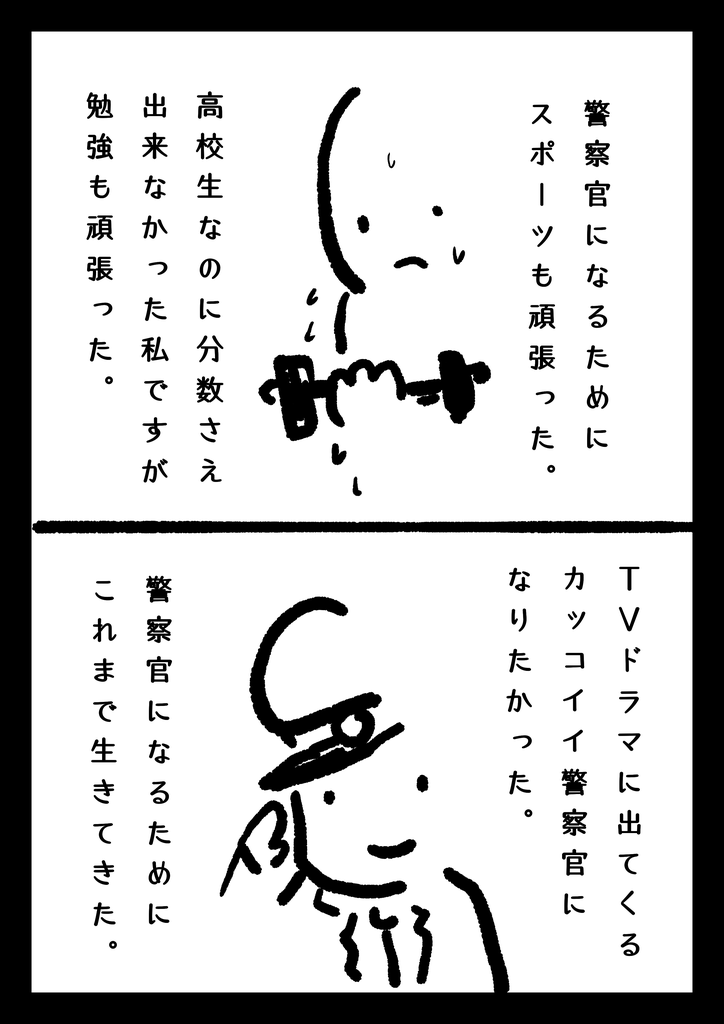 警察官になるために
スポーツも頑張った。
高校生なのに分数さえ
出来なかった私ですが
勉強も頑張った。
TVドラマに出てくる
カッコイイ警察官に
なりたかった。
警察官になるために
これまで生きてきた。